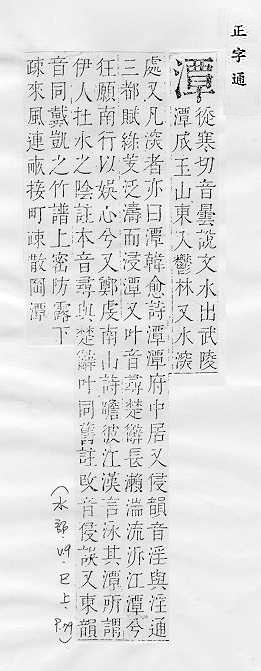 正字通
潭
從寒切音曇說文水出武陵
潭成玉山東入鬱林又水深
處又凡深者亦曰潭韓愈詩潭潭府中居又侵韻音淫與淫通
三都賦綠芰泛濤而浸潭又叶音尋楚辭長瀨湍流泝江潭兮
狂顧南行以娛心兮又鄭虔南山詩瞻彼江漢言泳其潭所謂
伊人在水之陰註本音尋與楚辭叶同舊註改音侵誤又東韻
音同戴凱之竹譜上密防露下
疎來風連畝接町疎散岡潭
(水部 49. 巳上. P.79)